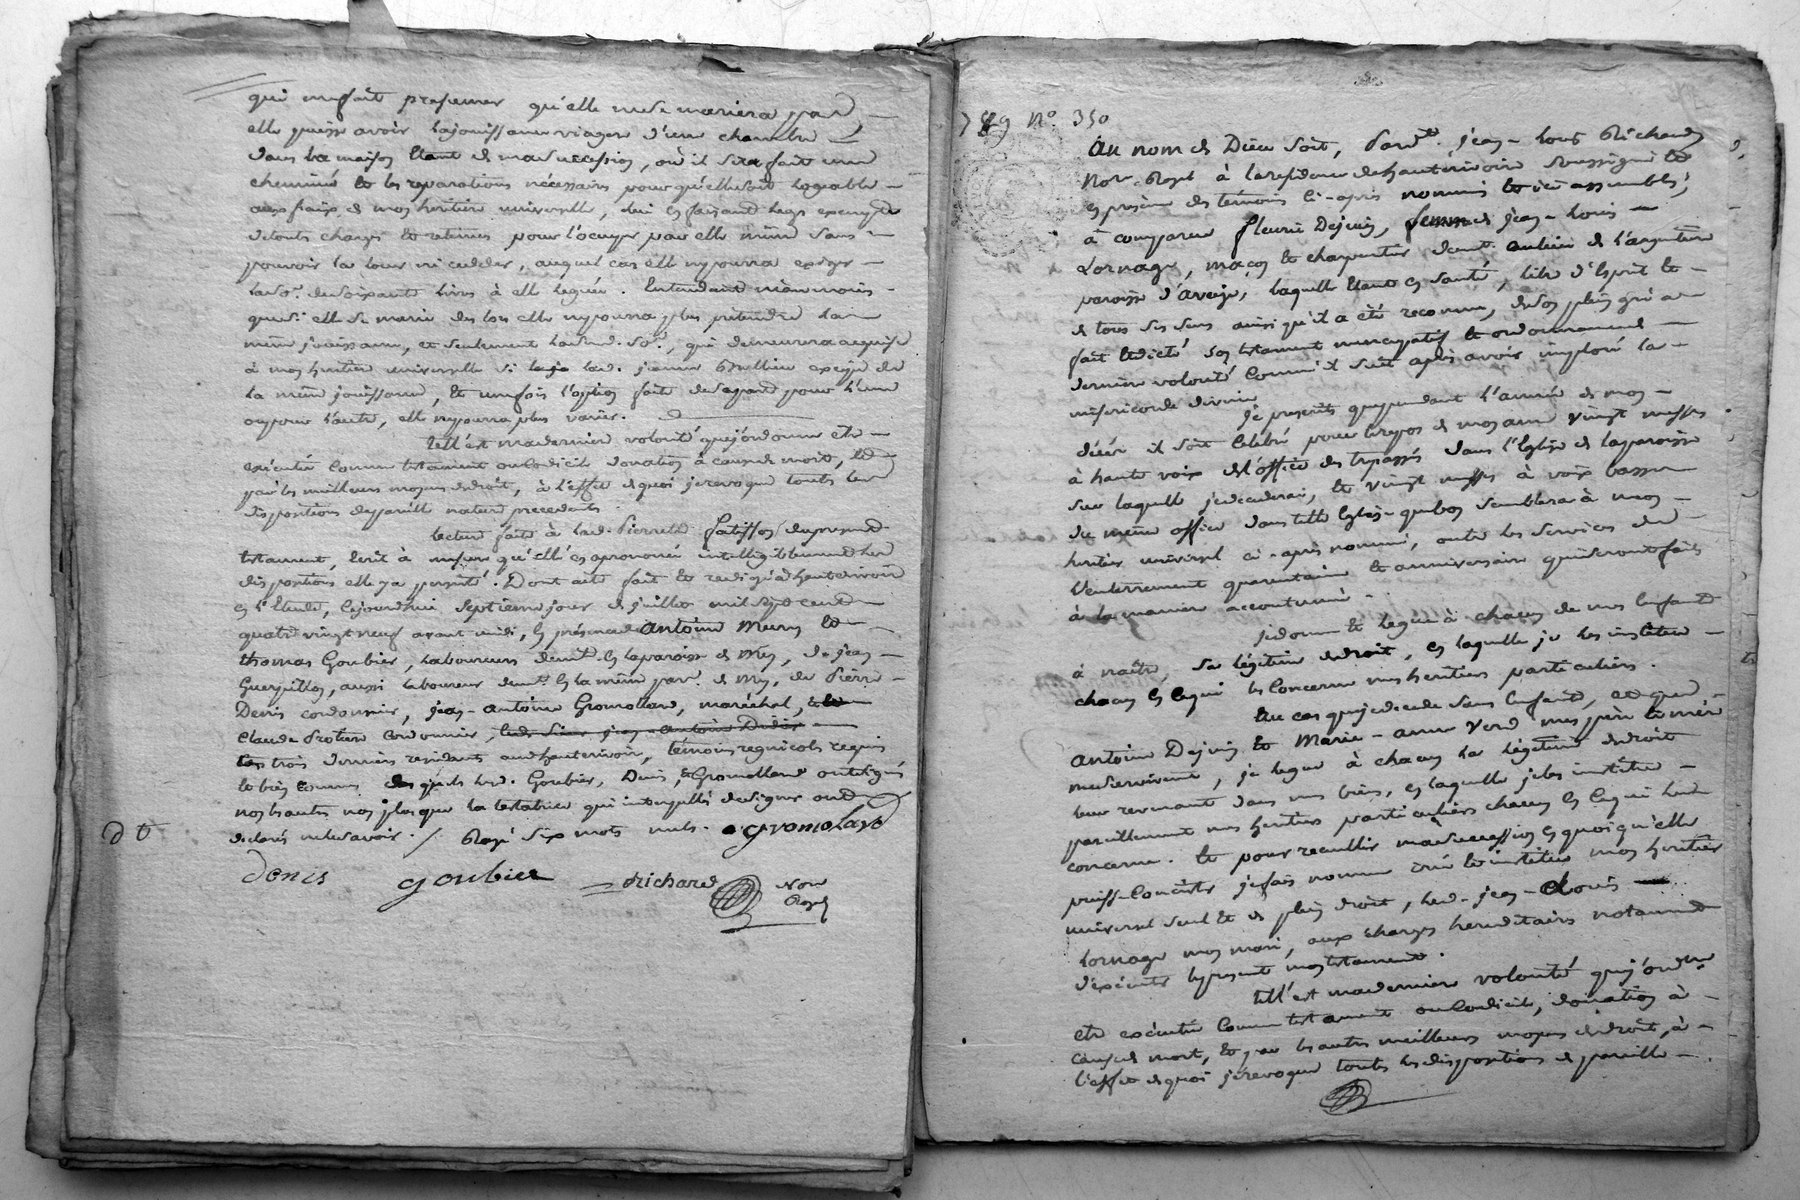 qui me fait presumer qu'elle ne se mariera pas
elle puisse avoir la jouissance viagere d'une chambre
dans la maison étant de ma succession, où il sera fait une
cheminée et les reparations nécessaires pour qu'elle soit logeable
aux fraix de mon heritier universelle,
de touts charges et retenues pour l'ocuper par elle même sans
pouvoir la louer ni cedder, auquel cas elle ny pourra exiger
la so.e de soixante livres à elle leguée. Entendant néanmoins
que si elle se marie des lors elle ny pourra plus prétendre la
même jouissance, et seulement lad. so.e, qui demeurera acquise
à mon heritier universelle si lad. jeanne exige de
la même jouissance, et une fois l'option faite de sa part pour l'une
ou pour l'autre, elle ny pourra plus varier.
telle est ma derniere volonté que j'ordonne etre
exécutée comme testament ou codicile donation à cause de mort, et
par les meilleurs moyens de droit, à l'effet de quoi je revoque toutes les
dispositions de pareille nature precedents.
lecture faite à lad. Pierrette Fatisson du present
testament, écrit à mesure qu'elle en a prononcé intelligiblement les
dispositions elle y a persisté. Dont acte fait et redigé à hauterivoire
en l'étude, cejourdhui septieme jour de juillet mil sept cent
quatre vingt neuf avant midi, en présence de Antoine Meurs et
thomas Goubier, laboureurs demt. en la paroisse de Mey, de jean
Guerpillon, aussi laboureur demt. en la même par. de Mey, de Pierre
Denis cordonnier, jean-antoine Gromollard, maréchal, et
Claude Protier cordonnier, led. Sieur jean antoine Didier
les trois derniers residants aud. hauterivoire, témoins regnicoles requis
et bien connus. desquels led. Goubier, Denis, & Gromollard ont signé
nos hauts non plus que la testatrice qui interpellés de signer ont
declaré ne le savoir. / Rayé six mots nuls. Gromolard
D t
denis goubier Richard
Nore
Royal
789 n.o 350
Au nom de Dieu soit, Pardt. jean-Louis Richard
Nore. Royal à la residence de hauterivoire soussigné et
en presence des témoins ci-après nommés et ici assemblés,
à comparu fleurie Dejoin, femme de jean-Louis
Lornage, maçon et charpentier demt. au lieu de l'argentiere
paroisse d'aveize, laquelle étant en santé, libre d'esprit et
de tous ses sens ainsi qu'il a été reconnu, de son plein gré a
fait et dicté son testament nuncupatif et ordonnance de
derniere volonté comme il suit après avoir imploré la
misericorde divine
je prescrits que pendant l'année de mon
décès il soit celebré pour le repos de mon ame vingt messes
à haute voix de l'office des trepassés dans l'église de la paroisse
sur laquelle je decederai, et vingt messes à voix basse
du même office dans telle église que bon semblera à mon
heritier universel ci-après nommé, outre les services de
l'enterrement quarantaine et anniversaire qui seront faits
à la maniere accoutumée.
je donne et legue à chacun de mes enfants
à naitre, sa légitime de droit, en laquelle je les institue
chacun en ce qui les concerne mes heritiers particuliers.
Au cas que je decede sans enfants, et que
Antoine Dejoin et Marie-anne Verd mes père et mère
me survivent, je legue à chacun la légitime de droit
leur revenant dans mes biens, en laquelle je les institue
pareillement mes heritiers particuliers chacun en ce qui les
concerne. Et pour recueillir ma succession en quoi qu'elle
puisse consister je fais nomme crée et institue mon heritier
universel seul et de plein droit, led. jean-Louis
Lornage mon mari, aux charges hereditaires notamment
d'exécuter le present mon testament.
telle est ma derniere volonté que j'ordonne
etre exécutée comme testament ou codicile, donation à
cause de mort, et par les autres meilleurs moyens de droit, à
l'effet de quoi je revoque toutes les dispositions de pareille